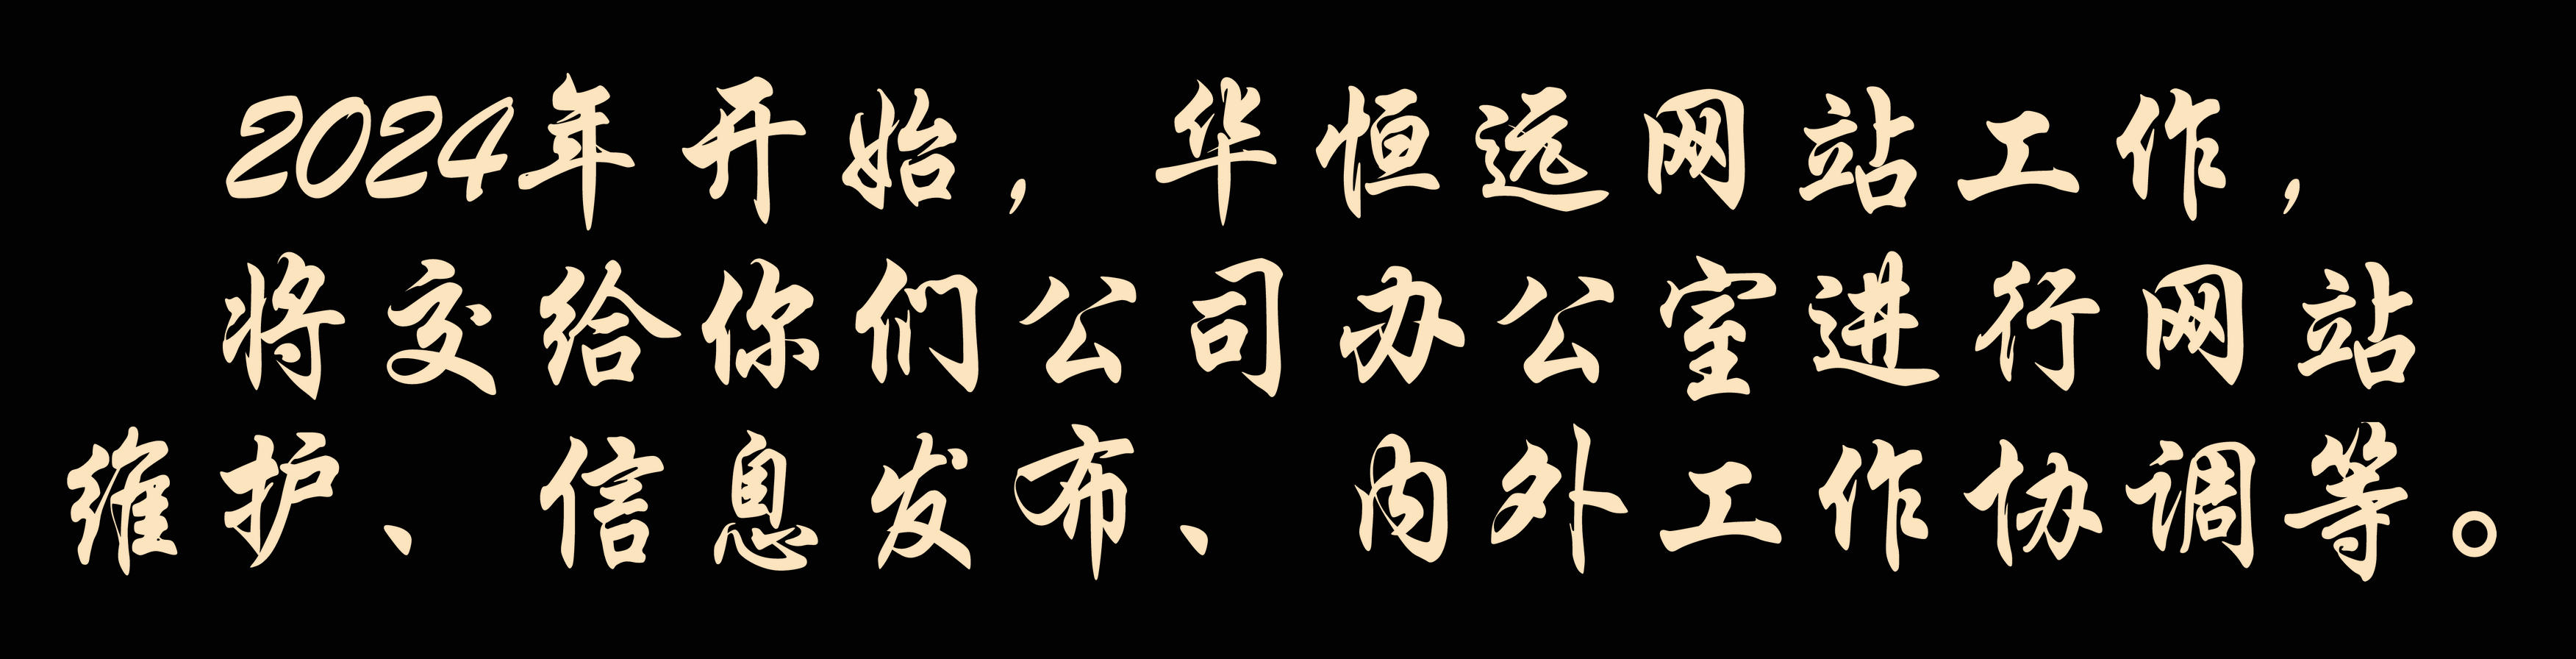 2024年开始，华恒远网站工作，
将交给你们公司办公室进行网站
维护、信息发布、内外工作协调等。